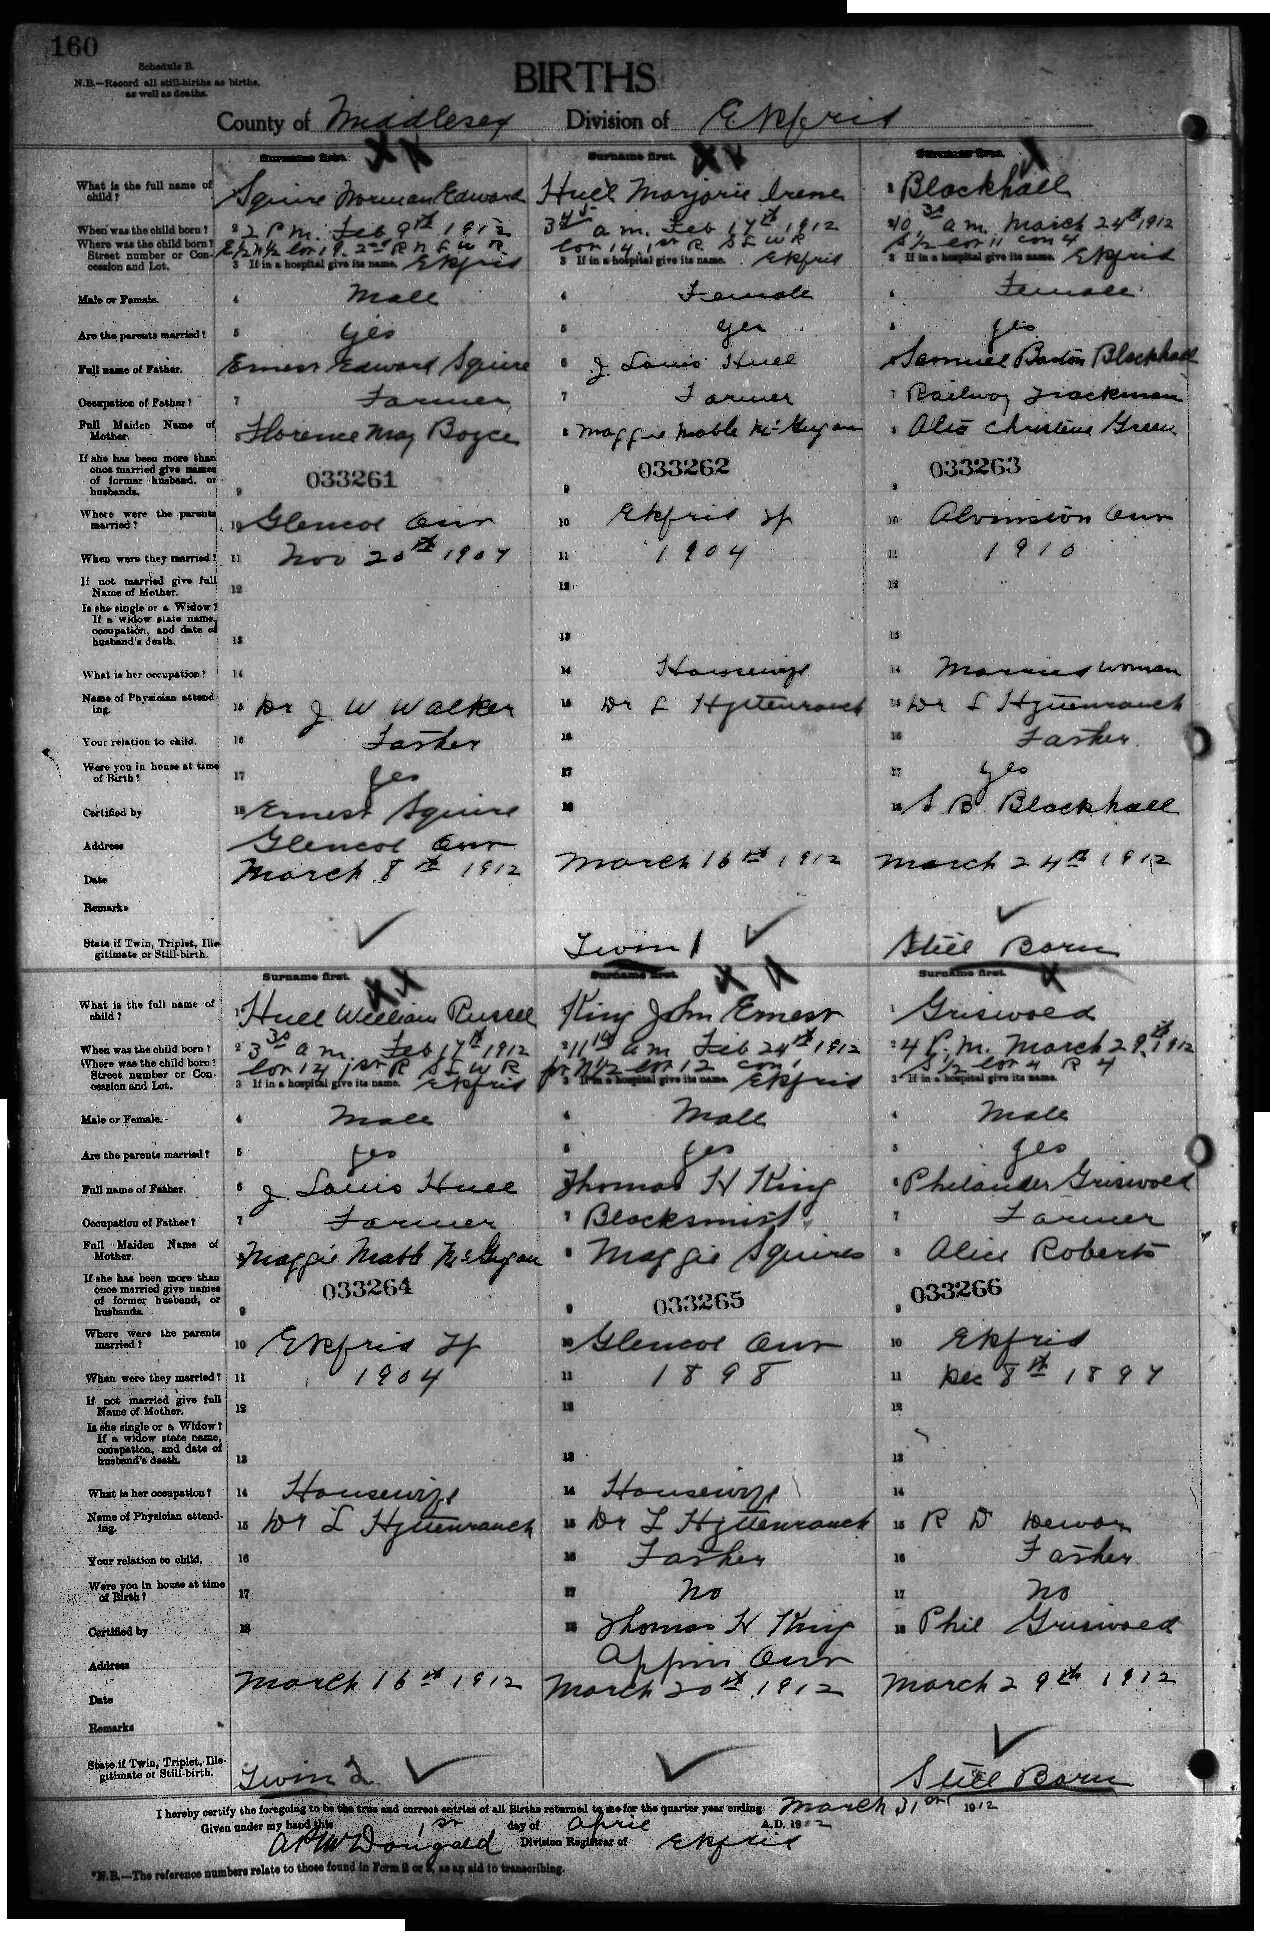 160
Schedule B.
N.B.—Record all still-births as births, as well as deaths.
BIRTHS
County of Middlesex Division of Ekfrid
Surname first. Surname first. Surname first.
What is the full name of child? Squire Norman Edward Hull Marjorie Irene 1 Blackhall
When was the child born? 2 2 P.M. Feb 9th 1912 3 45 a m. Feb 17th 1912 2 10 30 a m. March 24th 1912
Where was the child born? Street number or Concession and Lot. E½ N½ Lot 19. 2nd R N L W R Lot 14 1st R S L W R S ½ Lot 11 con 4
3 If in a hospital give its name. Ekfrid 3 If in a hospital give its name. Ekfrid 3 If in a hospital give its name. Ekfrid
Male or Female. 4 Male 4 Female 4 Female
Are the parents married? 5 yes 5 yes 5 yes
Full name of Father. Ernest Edward Squire 6 J Louis Hull Samuel Barton Blackhall
Occupation of Father? 7 Farmer 7 Farmer 7 Railway Trackman
Full Maiden Name of Mother. Florence May Boyce 8 Maggie Mable McGugan 8 Christine Green
If she has been more than once married give names of former husband, or husbands. 9 033261 9 033262 9 033263
Where were the parents married? 10 Glencoe Ont 10 Ekfrid Tp 10 Alvinston Ont
When were they married? 11 Nov 20th 1907 11 1904 11 1910
If not married give full Name of Mother. 12 12 12
Is she single or a Widow? If a widow state name, occupation, and date of husband's death. 13 13 13
What is her occupation? 14 14 Housewife 14 Married woman
Name of Physician attending. 15 Dr J W Walker 15 Dr L Hyttenrauch 15 Dr L Hyttenrauch
Your relation to child. 16 Father 16 16 Father
Were you in house at time of Birth? 17 yes 17 17 yes
Certified by 18 Ernest Squire 18 18 S B Blackhall
Address Glencoe Ont
Date March 8th 1912 March 16th 1912 March 24th 1912
Remarks
State if Twin, Triplet, Illegitimate or Still-birth. Twin 1 Still Born
Surname first. Surname first. Surname first.
What is the full name of child? 1 Hull William Russel King John Ernest 1 Griswold
When was the child born? 2 3 30 a m. Feb 17th 1912 2 11 a m Feb 24th 1912 2 4 P.M. March 29th 1912
Where was the child born? Street number or Concession and Lot. Lot 14 1st R S L W R pt N½ Lot 12 con 1 S ½ Lot 4 R 4
3 If in a hospital give its name. Ekfrid 3 If in a hospital give its name. Ekfrid 3 If in a hospital give its name.
Male or Female. 4 Male 4 Male 4 Male
Are the parents married? 5 yes 5 yes 5 yes
Full name of Father. 6 J Louis Hull Thomas H King 6 Philander Griswold
Occupation of Father? 7 Farmer 7 Blacksmith 7 Farmer
Full Maiden Name of Mother. 8 Maggie Mable McGugan 8 Maggie Squires 8 Alice Roberts
If she has been more than once married give names of former husband, or husbands. 9 033264 9 033265 9 033266
Where were the parents married? 10 Ekfrid Tp 10 Glencoe Ont 10 Ekfrid
When were they married? 11 1904 11 1898 11 Dec 8th 1897
If not married give full Name of Mother. 12 12 12
Is she single or a Widow? If a widow state name, occupation, and date of husband's death. 13 13 13
What is her occupation? 14 Housewife 14 Housewife 14
Name of Physician attending. 15 Dr L Hyttenrauch 15 Dr L Hyttenrauch 15 R D Dewar
Your relation to child. 16 16 Father 16 Father
Were you in house at time of Birth? 17 17 No 17 No
Certified by 18 18 Thomas H King 18 Phil Griswold
Address Appin Ont
Date March 16th 1912 March 20th 1912 March 29th 1912
Remarks
State if Twin, Triplet, Illegitimate or Still-birth. Twin 2 Still Born
I hereby certify the foregoing to be the true and correct entries of all Births returned to me for the quarter year ending March 31st 1912
Given under my hand this 1st day of April A.D. 1912
A P McDougald Division Registrar of Ekfrid
*N.B.—The reference numbers relate to those found in Form 2 or 3, as an aid to transcribing.